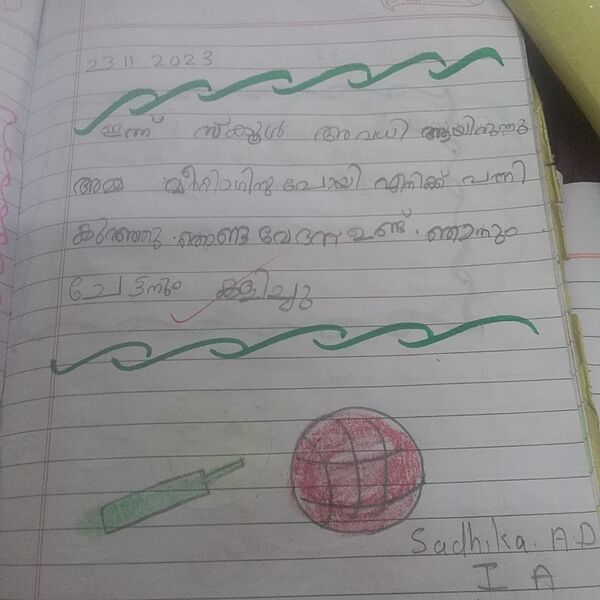 23 11 2023
ഇന്ന് സ്കൂൾ അവധി ആയിരുന്നു
അമ്മ പോയി എനിക്ക് പനി
കുറഞ്ഞു. തൊണ്ട വേദന ഉണ്ട്. ഞാനും
ചേട്ടനും കളിച്ചു
Sadhika. A.D
I A